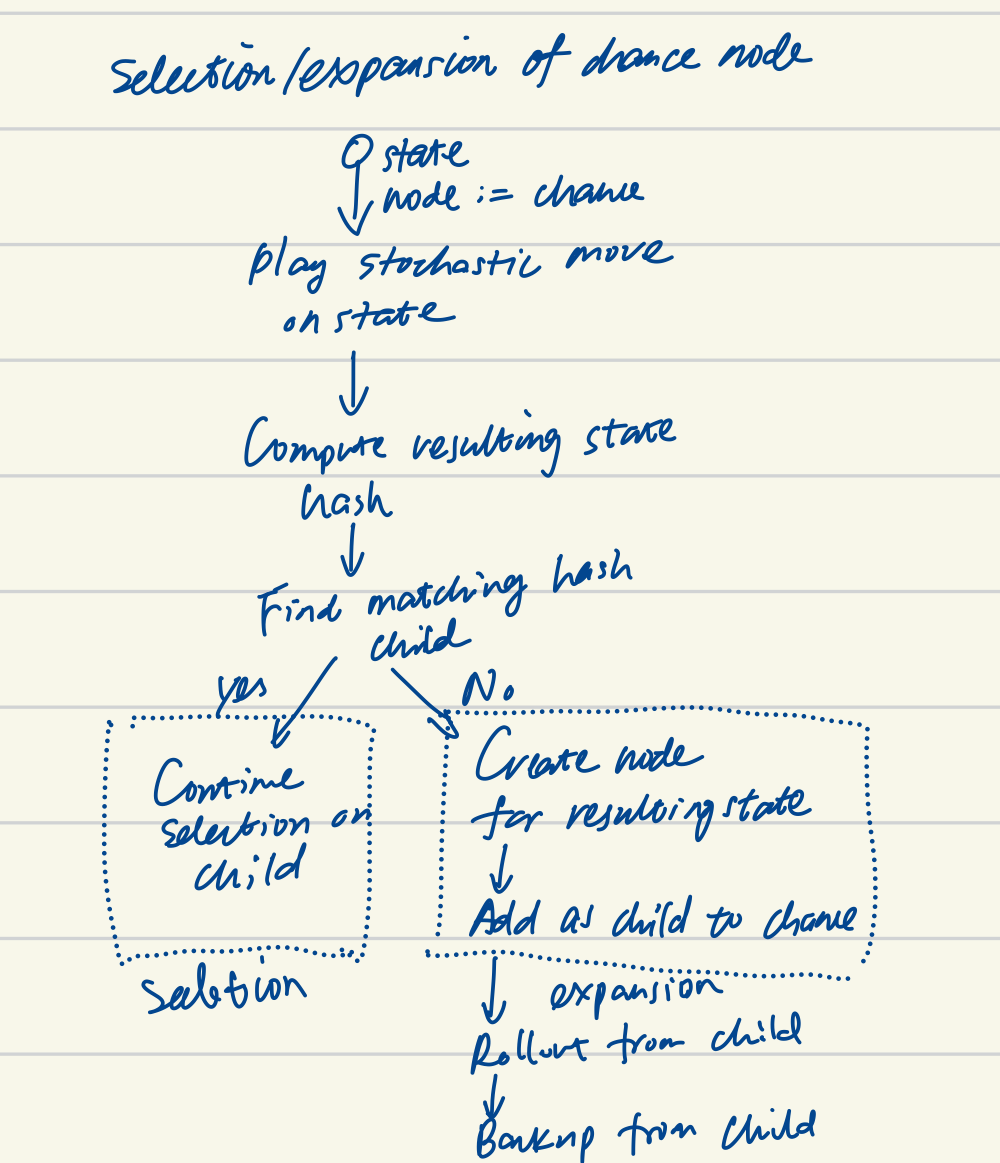 Selection/expansion of chance node
state
node := chance
play stochastic move
on state
Compute resulting state
hash
Find matching hash
child
Yes
No
Continue
selection on
child
Selection
Create node
for resulting state
Add as child to chance
expansion
Rollout from child
Backup from child